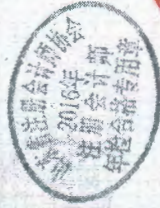 注册会计师协会
2016年
注册会计师
年检合格专用章